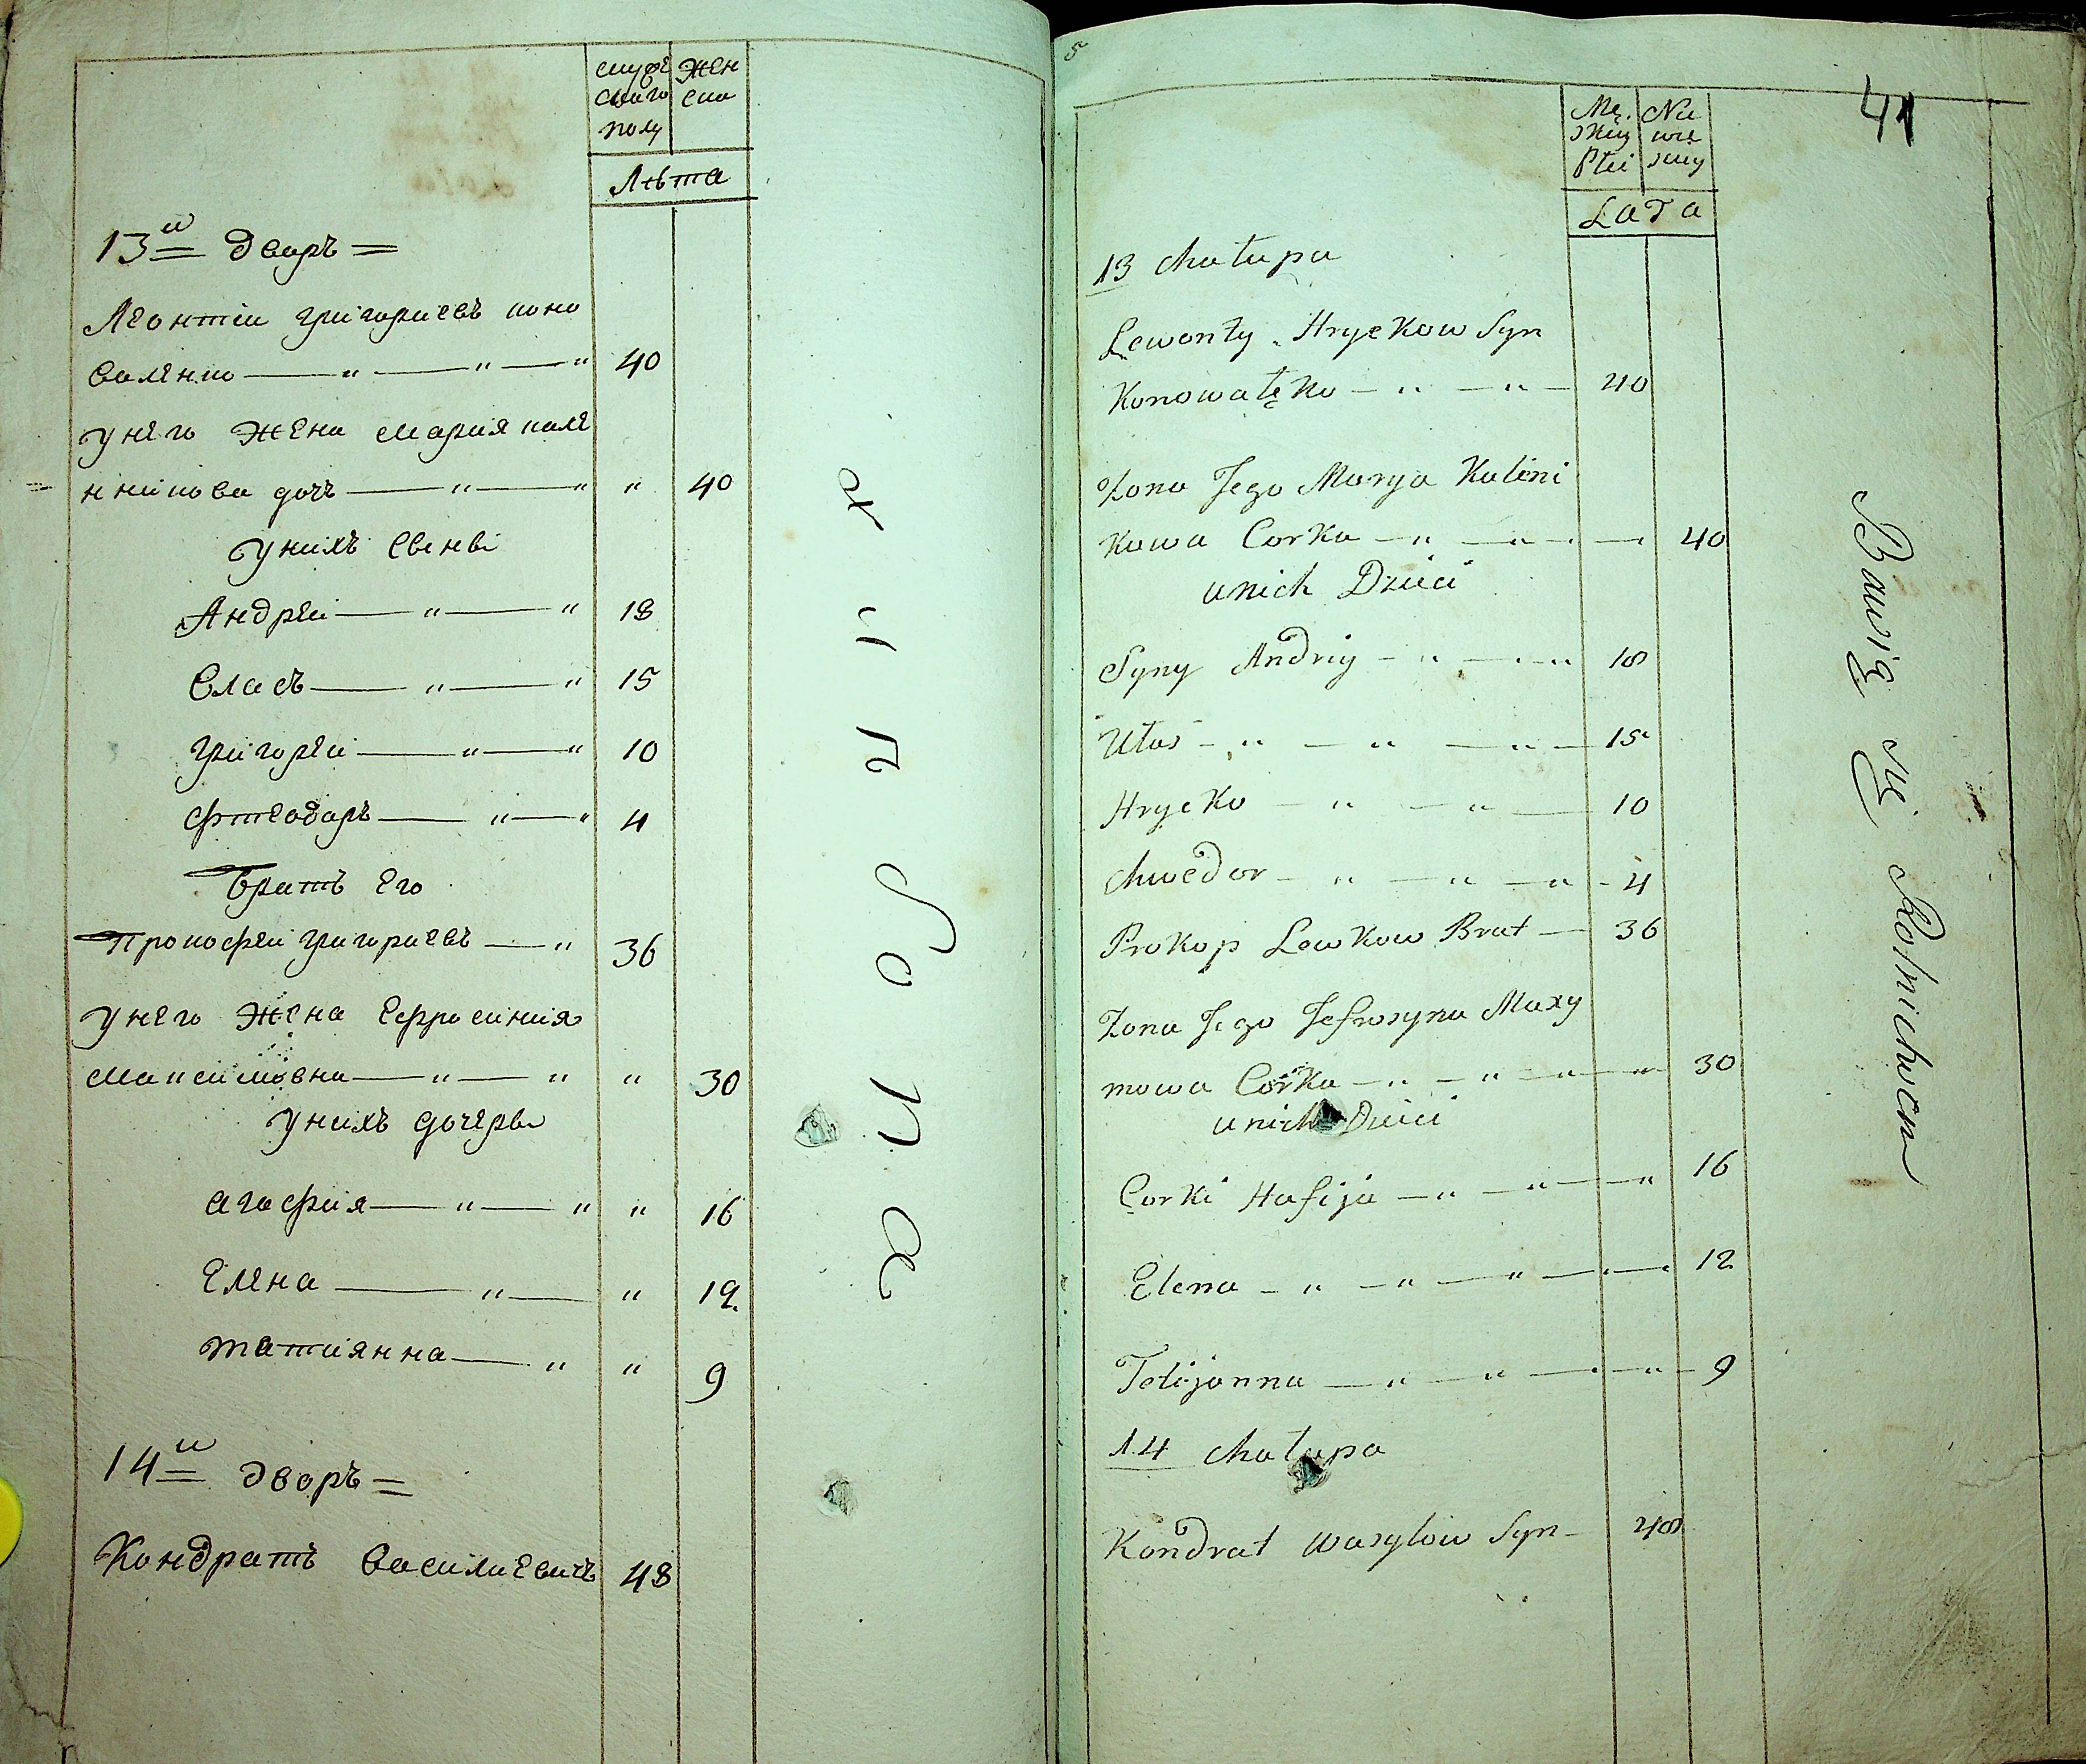 мужескаго полу
женска
Лѣта
13й дворъ =
Леонтіи Григориевъ коно
валенко 40
у него жена Мария кале
нникова дочъ " 40
у нихъ сынви
Андреи 18
Власъ 15
Григореи 10
Фтеодоръ 4
братъ Его
Прокофеи Григориевъ 36
у него жена Ефросиния
Максимовна " 30
у нихъ дочери
Агафия " 16
Елена " 12
Татиянна " 9
14й дворъ =
Кондратъ Василиевичъ 48
хлиборо
5
41
Mę. skiey Płci
Nie wie sciey
Lata
13 Chałupa
Lewonty Hryckow Syn
Konowalęko 40
Zona Jego Marya Kalini
kowa Corka 40
u nich Dzieci
Syny Andriy 18
Ułas 15
Hrycko 10
Chwedor 4
Prokop Lewkow Brat 36
Zona Jego Jefrosyna Maxy
mowa Corka 30
u nich Dzieci
Corki Hafija 16
Elena 12
Tetijanna 9
14 Chałupa
Kondrat Wasylow Syn 48
Bawią się Rolnictwem